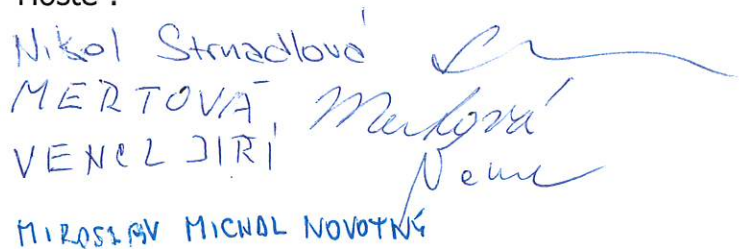 Hosté :
Nikol Strnadlová
MERTOVÁ Mertová
VENCL JIŘÍ
MIROSLAV MICHAL NOVOTNÝ